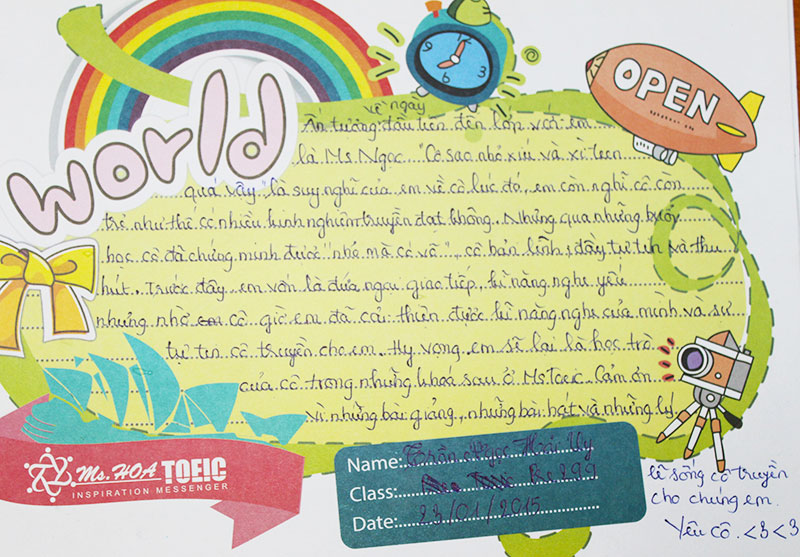 world
OPEN
Ấn tượng về ngày đầu tiên đến lớp với em
là Ms Ngọc "Cô sao nhỏ xíu và xì teen
quá vậy" là suy nghĩ của em về cô lúc đó, em còn nghĩ cô còn
trẻ như thế có nhiều kinh nghiệm truyền đạt không. Nhưng qua những buổi
học cô đã chứng minh được "nhỏ mà có võ", cô bản lĩnh, đầy tự tin và thu
hút. Trước đây em vốn là đứa ngại giao tiếp, kĩ năng nghe yếu
nhưng nhờ cô giờ em đã cải thiện được kĩ năng nghe của mình và sự
tự tin cô truyền cho em. Hy vọng em sẽ lại là học trò
của cô trong những khoá sau ở Ms Toeic. Cảm ơn
vì những bài giảng, những bài hát và những lý
lẽ sống cô truyền
cho chúng em.
Yêu cô. <3 <3
Ms. HOA TOEIC
INSPIRATION MESSENGER
Name: Trần Ngọc Hoài Uy
Class: Pre 299
Date: 23/01/2015